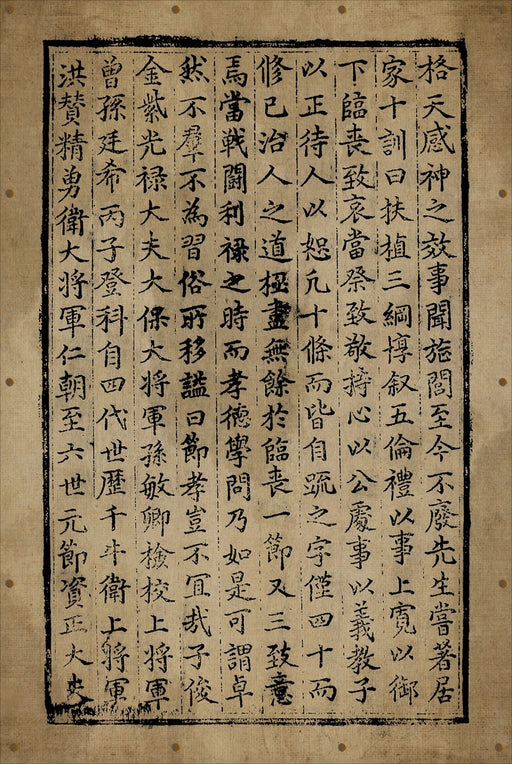 格天感神之效事聞旌閭至今不廢先生嘗著居
家十訓曰扶植三綱惇叙五倫禮以事上寬以御
下臨喪致哀當祭致敬持心以公處事以義教子
以正待人以恕凡十條而皆自䟽之字僅四十而
修已治人之道極盡無餘於臨喪一節又三致意
焉當戰鬪利祿之時而孝德學問乃如是可謂卓
然不羣不為習俗所移謚曰節孝豈不宜哉子俊
金紫光祿大夫大保大將軍孫敏卿檢校上將軍
曾孫廷希丙子登科自四代世歷千牛衛上將軍
洪贊精勇衛大將軍仁朝至六世元節資正大夫